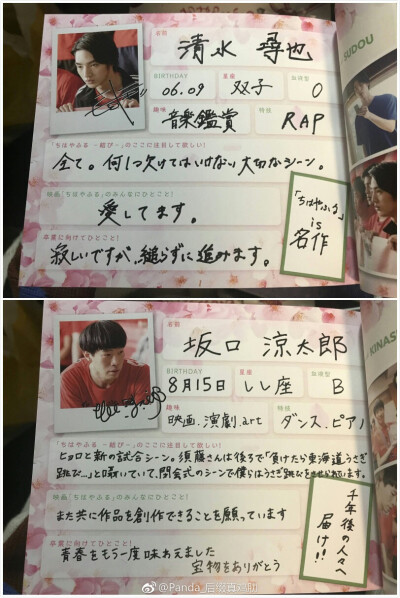 名前
清水 尋也
SUDOU
BIRTHDAY
星座
血液型
06.09
双子
O
趣味
特技
音楽鑑賞
RAP
「ちはやふる -結び-」のここに注目して欲しい!
全て。何1つ欠けてはいけない大切なシーン。
映画「ちはやふる」のみんなにひとこと!
愛してます。
卒業に向けてひとこと!
寂しいですが、縋らずに進みます。
「ちはやふる」
is
名作
名前
坂口 涼太郎
KINAS
BIRTHDAY
星座
血液型
8月15日
しし座
B
趣味
特技
映画.演劇.art
ダンス.ピアノ
「ちはやふる -結び-」のここに注目して欲しい!
ヒョロと新の試合シーン。須藤さんは後ろで「負けたら東海道うさぎ
跳び…」と囁いていて、閉会式のシーンで僕らはうさぎ跳びをさせられています。
映画「ちはやふる」のみんなにひとこと!
また共に作品を創作できることを願っています
卒業に向けてひとこと!
青春をもう一度味わえました
宝物をありがとう
千年後の人々へ
届け!!
@Panda_